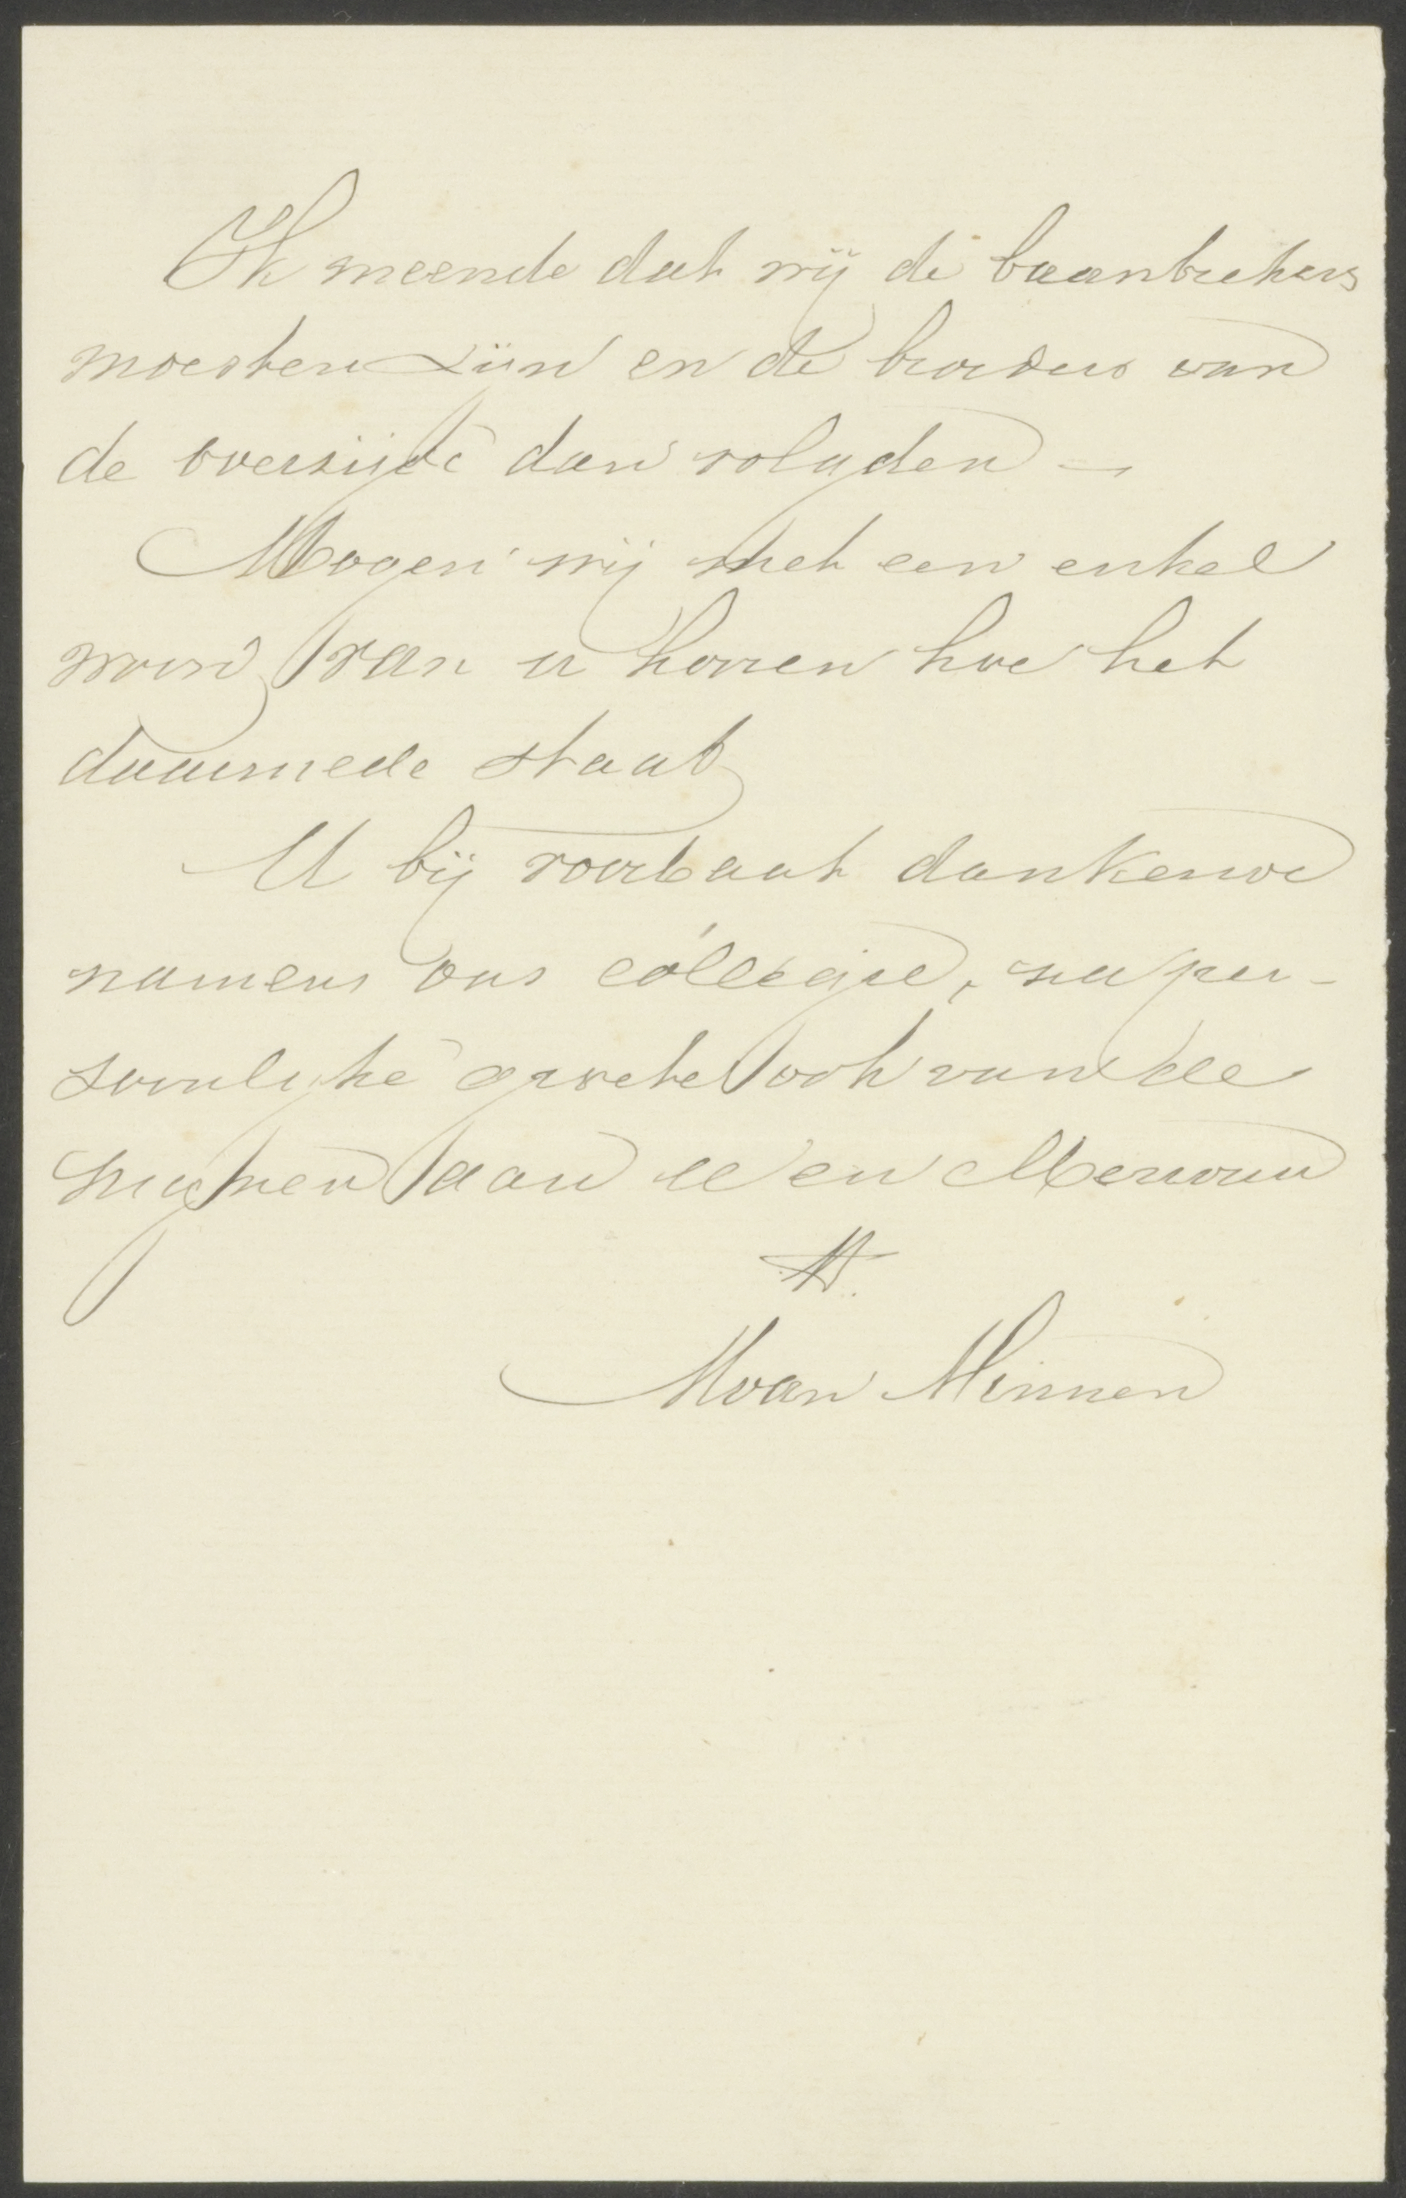 Ik meende dat wij de baanbrekers
moesten zijn en de broeders van
de overzijde dan volgden —
Mogen wij met een enkel
woord van u hooren hoe het
daarmede staat
U bij voorbaat dankend
namens ons collegie, na per-
soonlyke groete ook van de
mynen aan U en Mevrouw
M van Minnen